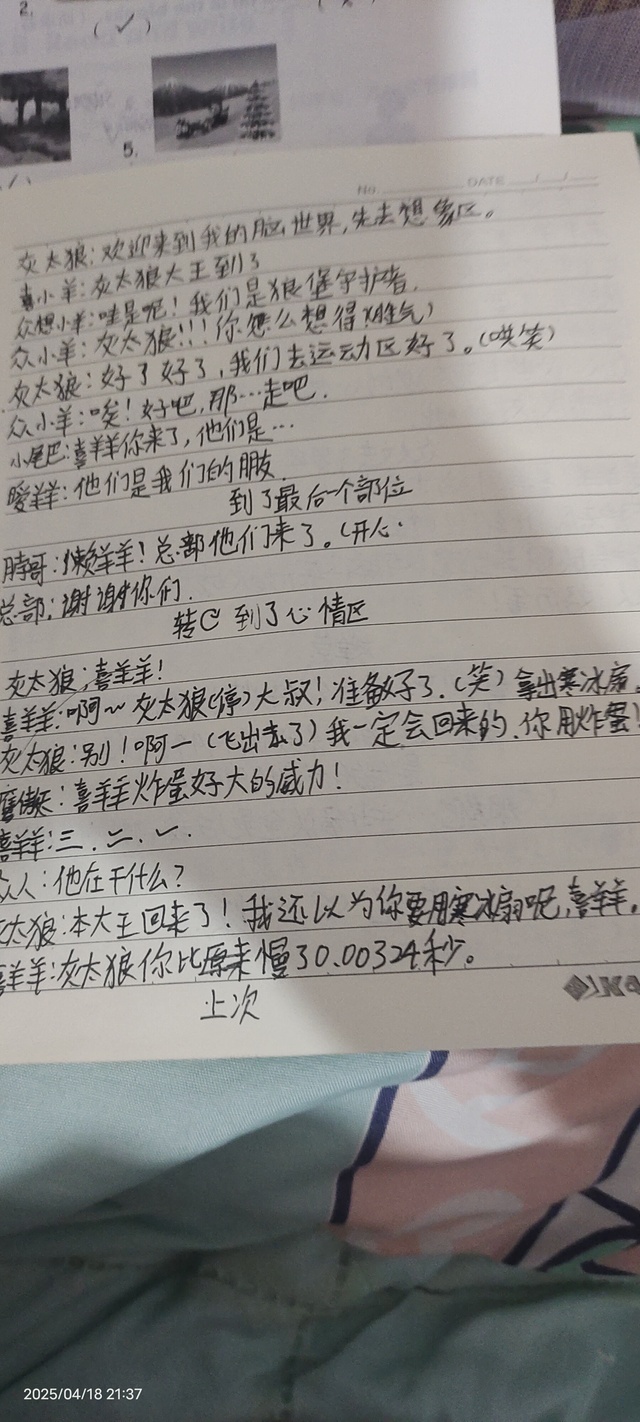 2.
(✓)
5.
No. DATE / /
灰太狼:欢迎来到我的脑世界,先去想象区。
喜小羊:灰太狼大王到了
众想小羊:哇是呢!我们是狼堡守护者.
众小羊:灰太狼!!!你怎么想得(生气)
灰太狼:好了好了,我们去运动区好了。(哄笑)
众小羊:唉!好吧,那…走吧.
小尾巴:喜羊羊你来了,他们是…
暖羊羊:他们是我们的朋友
到了最后一个部位
胖哥:懒羊羊!总部他们来了。(开心.
总部:谢谢你们.
转 到了心情区
灰太狼:喜羊羊!
喜羊羊:啊~灰太狼(停)大叔!准备好了.(笑)拿出寒冰扇.
灰太狼:别!啊一(飞出去了)我一定会回来的.你用炸蛋!
鹰傲天:喜羊羊炸蛋好大的威力!
喜羊羊:三.二.一.
众人:他在干什么?
灰太狼:本大王回来了!我还以为你要用寒冰扇呢,喜羊羊.
喜羊羊:灰太狼你比原来慢了0.00324秒。
上次
2025/04/18 21:37